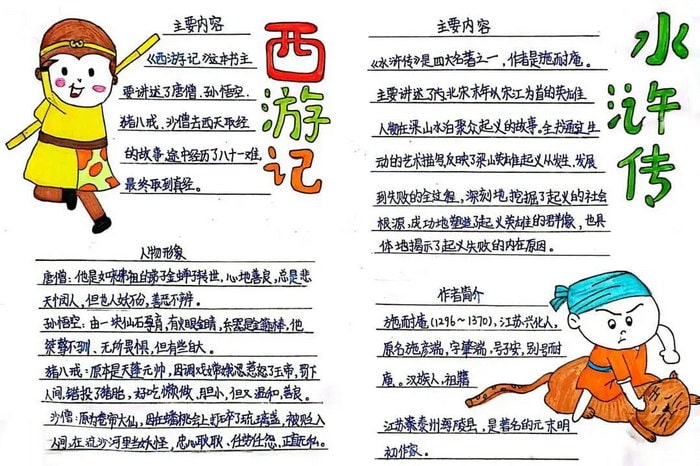 西游记
主要内容
《西游记》这本书主
要讲述了唐僧、孙悟空、
猪八戒、沙僧去西天取经
的故事，途中经历了八十一难，
最终取到真经。
人物形象
唐僧：他是如来佛祖的弟子金蝉子转世，心地善良，总是悲
天悯人，但也人妖不分，善恶不辨。
孙悟空：由一块仙石孕育，有火眼金睛，武器是金箍棒，他
桀骜不驯、无所畏惧，但有些自大。
猪八戒：原本是天蓬元帅，因调戏嫦娥惹怒了玉帝，罚下
人间，错投了猪胎，好吃懒做、胆小，但又温和、善良。
沙僧：原为卷帘大仙，因在蟠桃会上打碎了琉璃盏，被贬入
人间，在流沙河里当妖怪，忠心耿耿、任劳任怨，正直无私。
水浒传
主要内容
《水浒传》是四大名著之一，作者是施耐庵。
主要讲述了北宋末年以宋江为首的英雄
人物在梁山水泊聚众起义的故事。全书通过生
动的艺术描写，反映了梁山英雄起义从发生、发展
到失败的全过程，深刻地，挖掘了起义的社会
根源，成功地塑造了起义英雄的群像，也具
体地揭示了起义失败的内在原因。
作者简介
施耐庵（1296～1370），江苏兴化人，
原名施彦端，字肇端，号子安，别号耐
庵。汉族人，祖籍
江苏泰州海陵县，是著名的元末明
初作家。